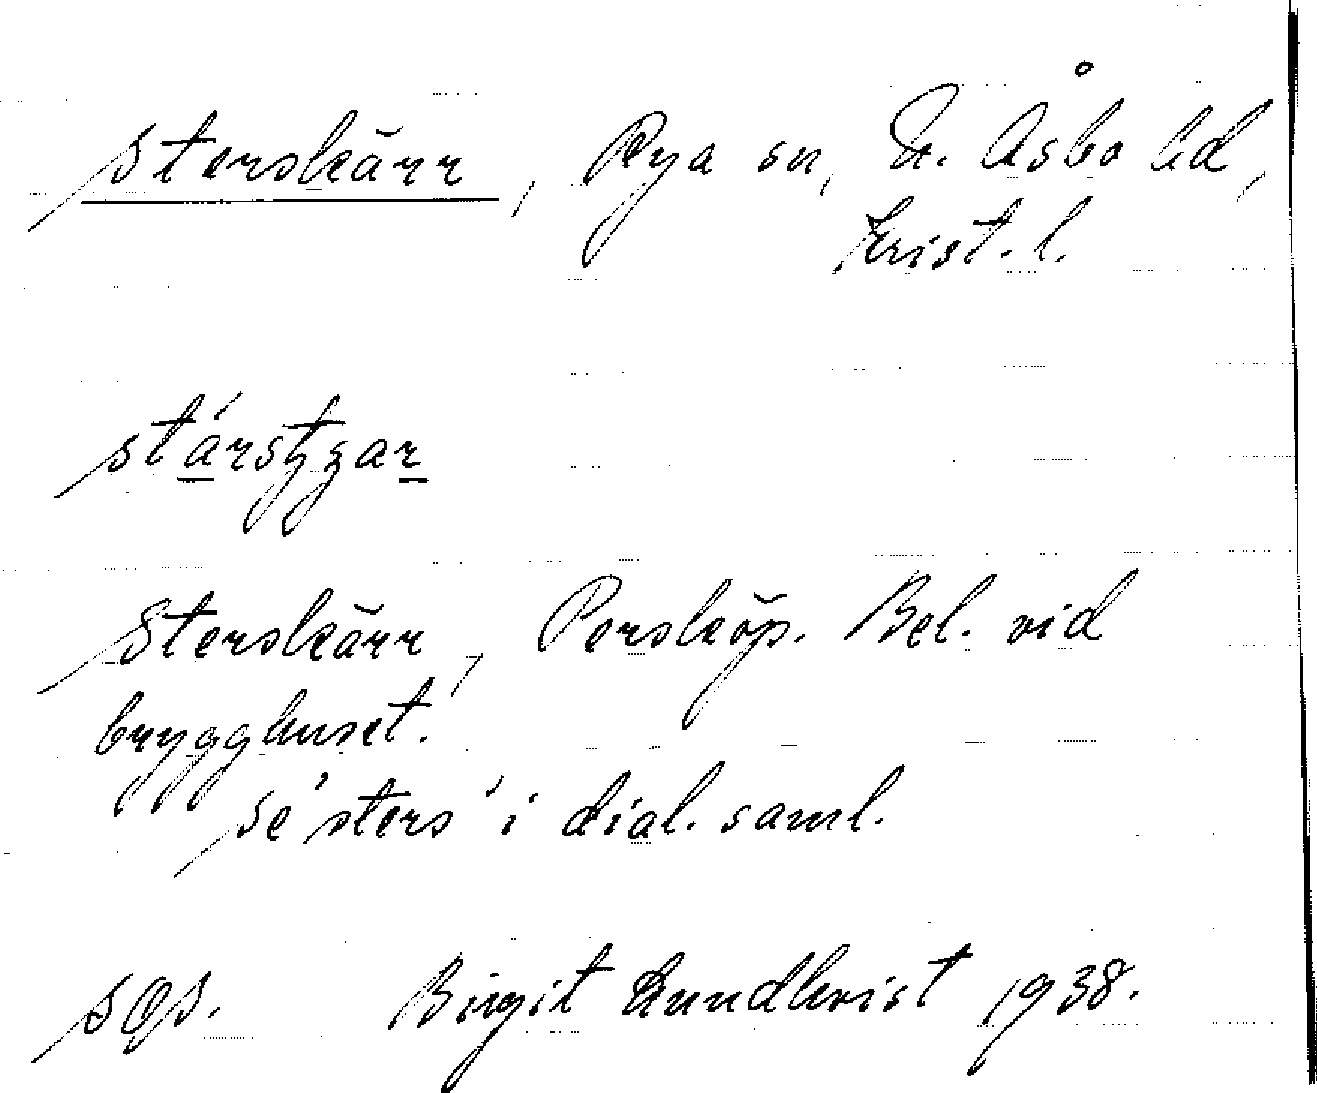 Sterskärr, Rya sn, N. Åsbo hd,
Krist. l.
Sterskärr, Persköp. Bel. vid
brygghuset.
Se 'sters' i dial. saml.
SOS. Birgit Lundkvist 1938.